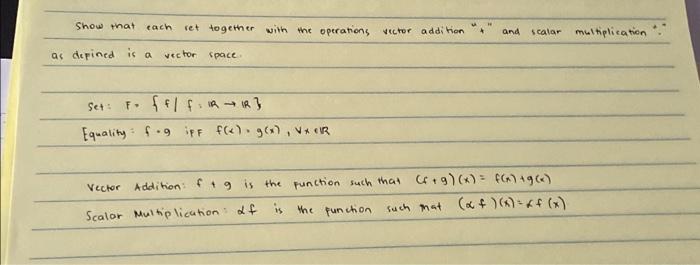 Show that each set together with the operations vector addition "+" and scalar multiplication "."
as defined is a vector space.
Set: F = { f | f : ℝ → ℝ }
Equality: f = g iff f(x) = g(x), ∀x ∈ ℝ
Vector Addition: f + g is the function such that (f + g)(x) = f(x) + g(x)
Scalar Multiplication: αf is the function such that (αf)(x) = αf(x)